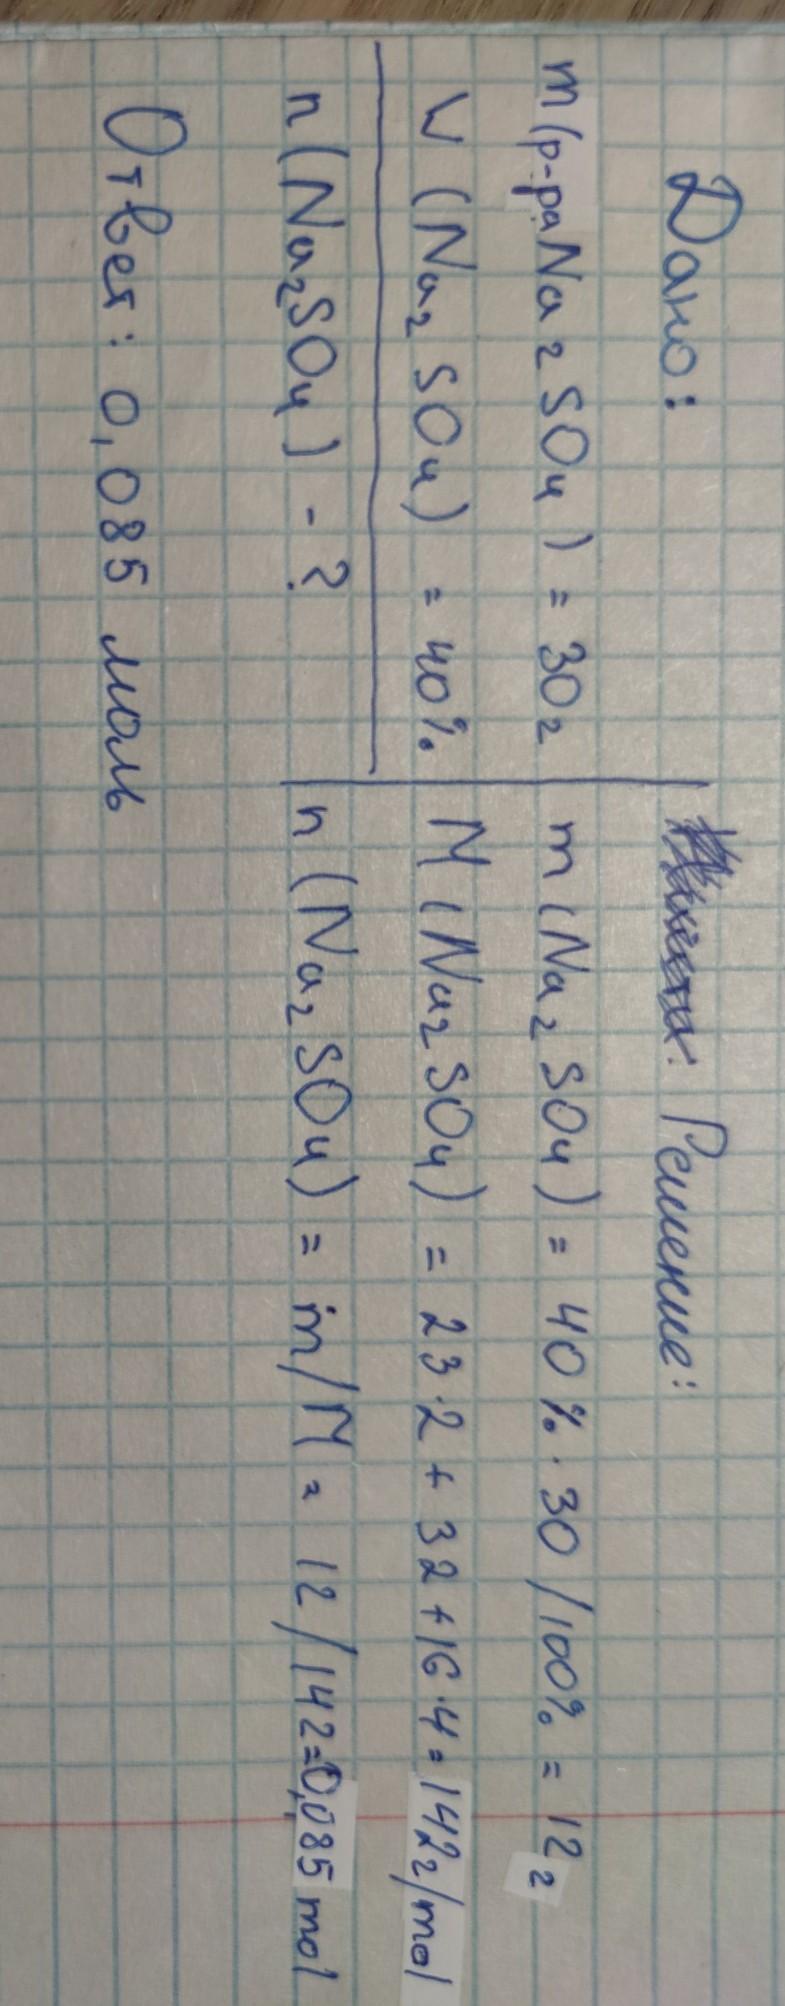 Дано:
m(р-ра Na2SO4) = 30г
W (Na2SO4) = 40%
n(Na2SO4) - ?
Решение:
m(Na2SO4) = 40% · 30/100% = 12г
M(Na2SO4) = 23·2 + 32 + 16·4 = 142г/mol
n(Na2SO4) = m/M = 12/142=0,085 mol
Ответ: 0,085 моль